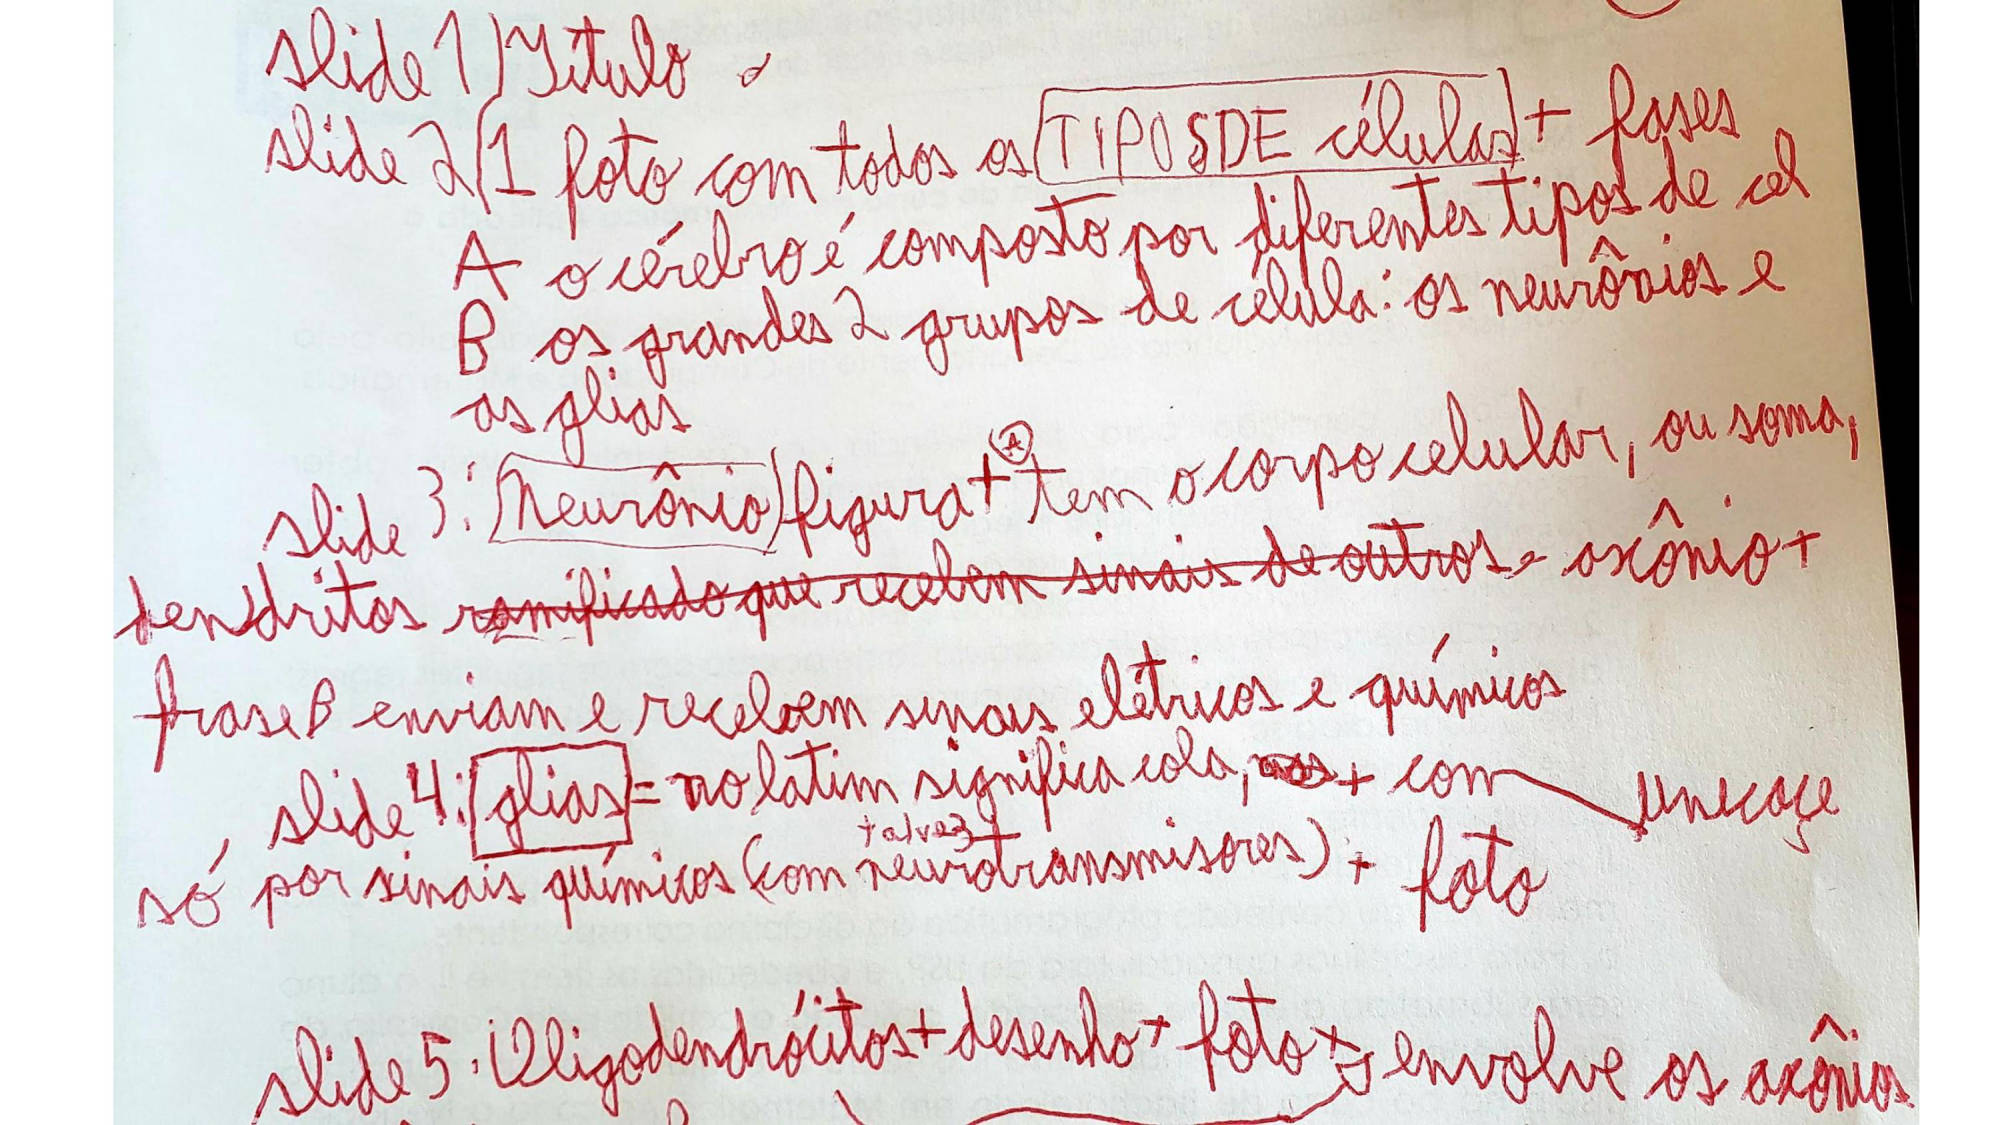 slide 1) Título
slide 2) 1 foto com todos os TIPOS DE células + frases
A o cérebro é composto por diferentes tipos de cel
B os grandes 2 grupos de célula: os neurônios e
as glias
slide 3: Neurônio figura + A tem o corpo celular, ou soma,
dendritos ramificado que recebem sinais de outros axônio +
frase B enviam e recebem sinais elétricos e químicos
slide 4: glias = no latim significa cola, + com
só por sinais químicos (com talvez neurotransmisores) + foto
slide 5: Oligodendrócitos + desenho + foto + envolve os axônios